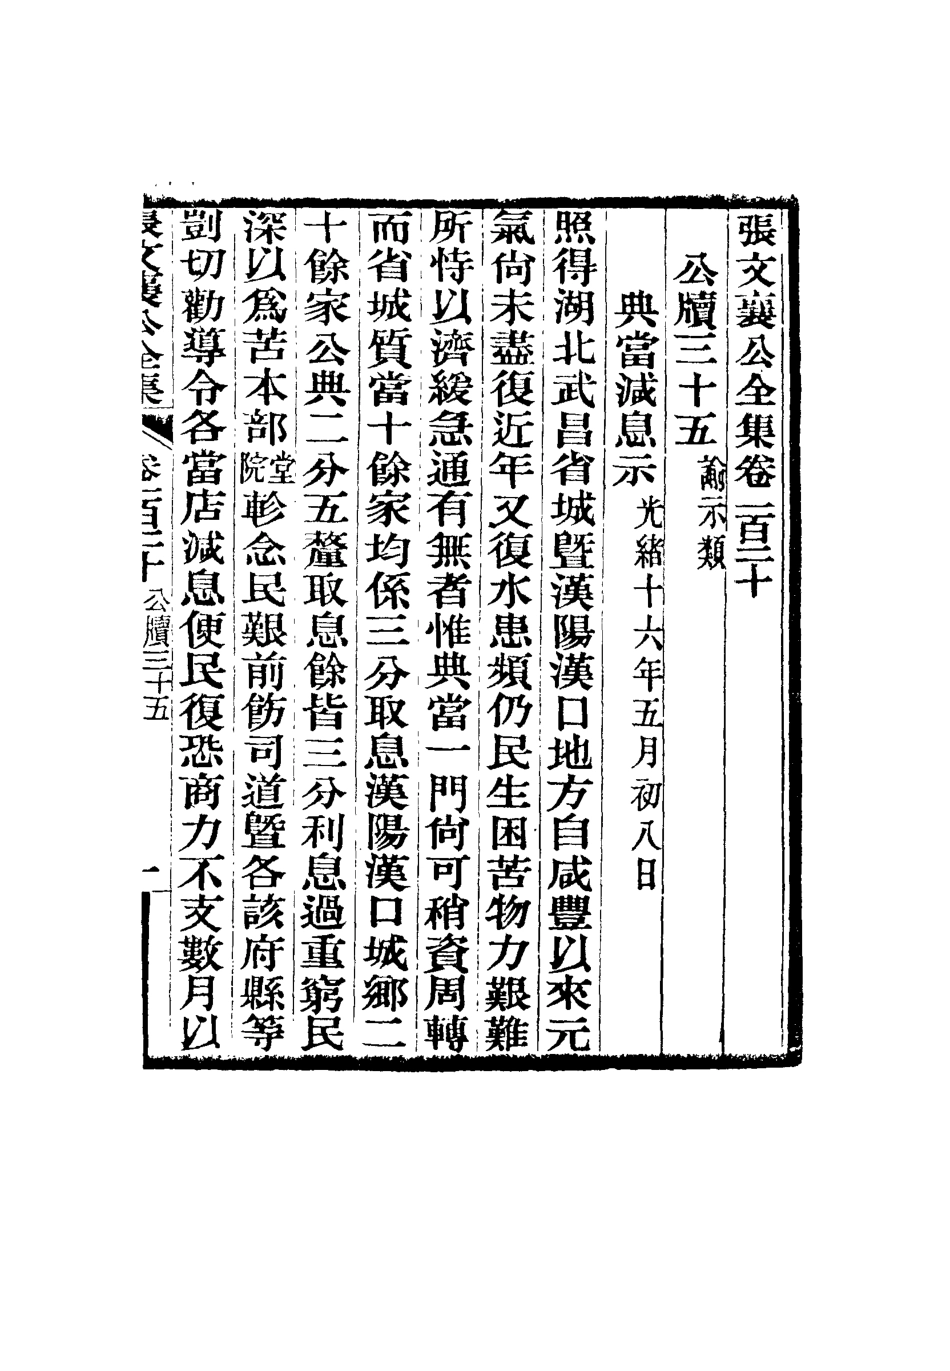 張文襄公全集卷一百二十
公牘三十五 諭示類
典當減息示 光緒十六年五月初八日
照得湖北武昌省城暨漢陽漢口地方自咸豐以來元
氣尙未盡復近年又復水患頻仍民生困苦物力艱難
所恃以濟緩急通有無者惟典當一門尙可稍資周轉
而省城質當十餘家均係三分取息漢陽漢口城鄉二
十餘家公典二分五釐取息餘皆三分利息過重窮民
深以爲苦本部堂院軫念民艱前飭司道曁各該府縣等
剴切勸導令各當店減息便民復恐商力不支數月以
張文襄公全集 卷一百二十 公牘三十五 一